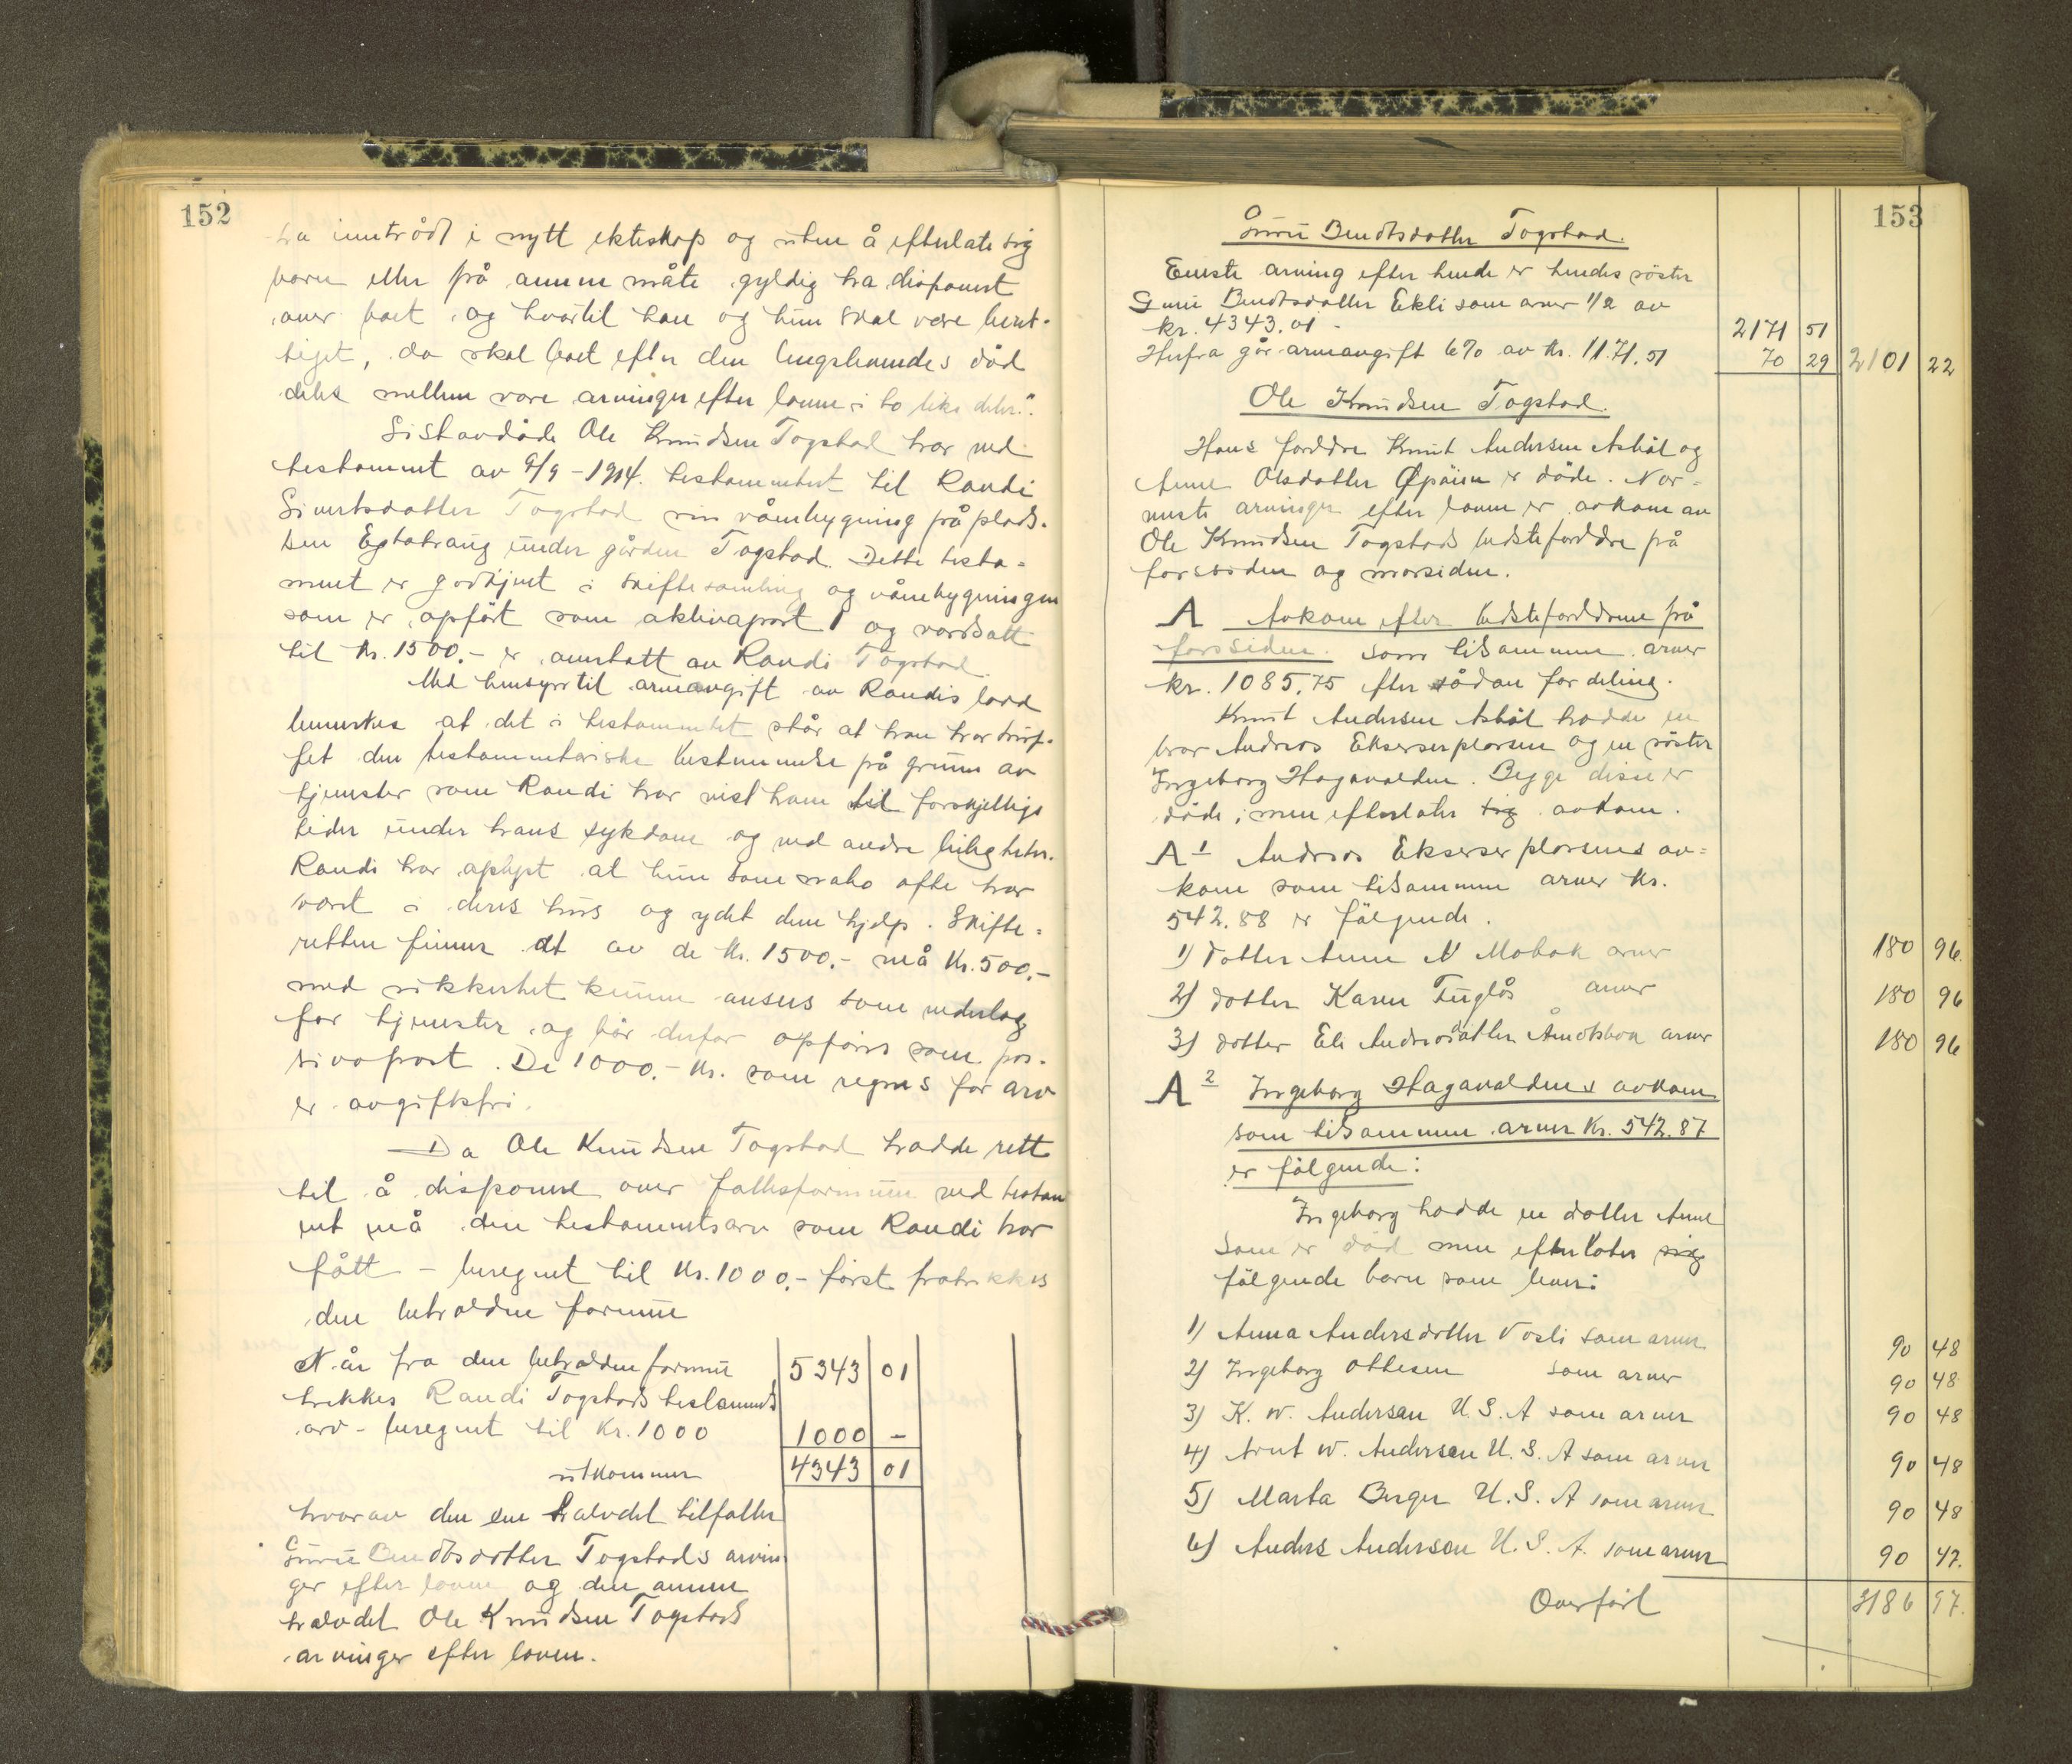 152
ha inntrådt i nytt ekteskap og uten å efterlate sig
barn eller på annen måte gyldig ha disponert
over boet, og hvartil han og hun skal være beret-
tiget, da skal boet efter den lengstlevendes död
deles mellem våre arvinger efter loven i to like deler."
Sistavdöde Ole Knudsen Togstad har ved
testamente av 9/9-1914 testamentert til Randi
Sivertsdatter Togstad sin våningsbygning på plads-
sen Egtatrang under gården Togstad. Dette testa-
ment er godkjent i skiftesamling og våningsbygningen
som er opfört som aktivapost 1 og verdsatt
til kr. 1500.- er overtatt av Randi Togstad.
Med hensyn til arveavgift av Randis lodd
bemerkes at det i testamentet står at han har truf-
fet den testamentariske bestemmelse på grunn av
tjenester som Randi har vist ham til forskjellige
tider under hans sykdom og ved andre leiligheter.
Randi har oplyst at hun som nabo ofte har
vært i deres hus og ydet dem hjelp. Skifte-
retten finner at av de kr. 1500.- må kr. 500.-
med sikkerhet kunne anses som vederlag
for tjenester og bör derfor opföres som pas-
sivapost. De 1000.- kr. som regnes for arv
er avgiftsfri.
Da Ole Knudsen Togstad hadde rett
til å disponere over fellesformuen ved testam
ent må den testamentsarv som Randi har
fått - beregnet til kr. 1000.- först fratrekkes
den beholdne formue
Når fra den beholdne formue 5343 01
trekkes Randi Togstads testaments
arv - beregnet til kr. 1000 1000 -
utkommer 4343 01
hvorav den ene halvdel tilfaller
Guru Bendtsdatter Togstads arvin-
ger efter loven og den annen
halvdel Ole Knudsen Togstads
arvinger efter loven.
153
Guru Bendtsdatter Togstad.
Eneste arving efter hende er hendes söster
Guru Bendtsdatter Ekli som arver 1/2 av
kr. 4343.01 - 2171 51
Herfra går arveavgift 6% av kr. 1171.51 70 29 2101 22
Ole Knudsen Togstad.
Hans foreldre Knut Andersen Asböl og
Anne Olsdatter er döde. Nær-
meste arvinger efter loven er avkom av
Ole Knudsen Togstads besteforeldre på
farssiden og morsiden.
A Avkom efter besteforeldrene på
farssiden som tilsammen arver
kr. 1085,75 efter sådan fordeling.
Knut Andersen Asböl hadde en
bror Andreas Ekserserplassen og en söster
Ingeborg Hagavolden. Begge disse er
döde, men efterlater sig avkom.
A 1 Andreas Ekserserplassens av-
kom som tilsammen arver kr.
542.88 er fölgende.
1) datter Anne N Mobak arver 180 96
2) datter Karen Fuglås arver 180 96
3) datter Eli Andreasdatter Åmotsbak arver 180 96
A 2 Ingeborg Hagavoldens avkom
som tilsammen arver kr. 542.87
er fölgende:
Ingeborg hadde en datter Anne
som er död men efterlater sig
fölgende barn som lever:
1) Anna Andersdatter Vosli som arver 90 48
2) Ingeborg Ottesen som arver 90 48
3) K. W. Andersen U.S.A som arver 90 48
4) Arnt W. Andersen U.S.A som arver 90 48
5) Marta Berger U.S.A som arver 90 48
6) Anders Anderson U.S.A. som arver 90 47.
Overfört 3186 97.